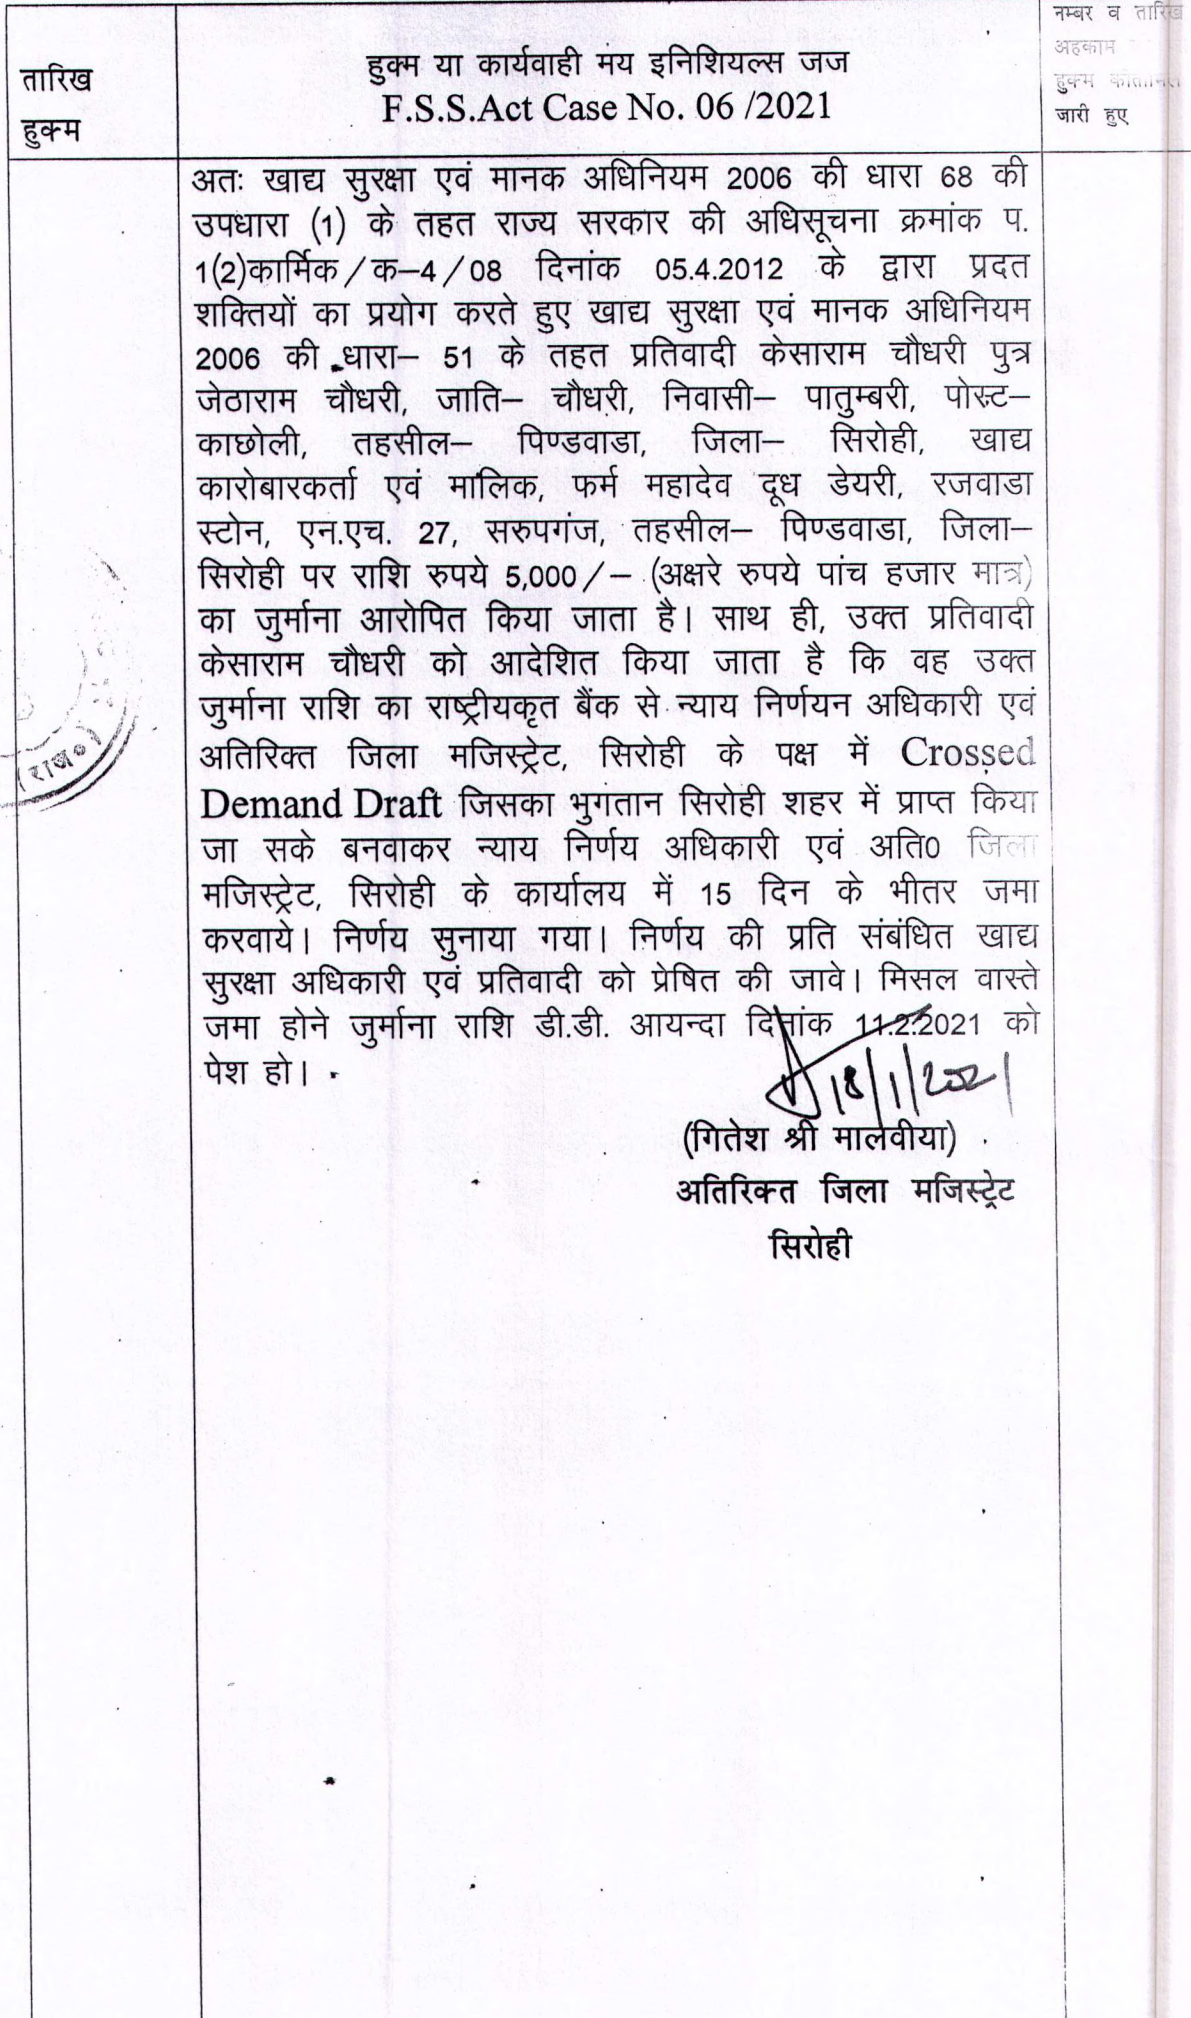 तारिख
हुक्म
हुक्म या कार्यवाही मय इनिशियल्स जज
F.S.S.Act Case No. 06 /2021
नम्बर व तारिख
अहकाम
हुक्म
जारी हुए
अतः खाद्य सुरक्षा एवं मानक अधिनियम 2006 की धारा 68 की
उपधारा (1) के तहत राज्य सरकार की अधिसूचना क्रमांक प.
1(2)कार्मिक/क–4/08 दिनांक 05.4.2012 के द्वारा प्रदत
शक्तियों का प्रयोग करते हुए खाद्य सुरक्षा एवं मानक अधिनियम
2006 की धारा– 51 के तहत प्रतिवादी केसाराम चौधरी पुत्र
जेठाराम चौधरी, जाति– चौधरी, निवासी– पातुम्बरी, पोस्ट–
काछोली, तहसील– पिण्डवाडा, जिला– सिरोही, खाद्य
कारोबारकर्ता एवं मालिक, फर्म महादेव दूध डेयरी, रजवाडा
स्टोन, एन.एच. 27, सरुपगंज, तहसील– पिण्डवाडा, जिला–
सिरोही पर राशि रुपये 5,000/– (अक्षरे रुपये पांच हजार मात्र)
का जुर्माना आरोपित किया जाता है। साथ ही, उक्त प्रतिवादी
केसाराम चौधरी को आदेशित किया जाता है कि वह उक्त
जुर्माना राशि का राष्ट्रीयकृत बैंक से न्याय निर्णयन अधिकारी एवं
अतिरिक्त जिला मजिस्ट्रेट, सिरोही के पक्ष में Crossed
Demand Draft जिसका भुगतान सिरोही शहर में प्राप्त किया
जा सके बनवाकर न्याय निर्णय अधिकारी एवं अति0 जिला
मजिस्ट्रेट, सिरोही के कार्यालय में 15 दिन के भीतर जमा
करवाये। निर्णय सुनाया गया। निर्णय की प्रति संबंधित खाद्य
सुरक्षा अधिकारी एवं प्रतिवादी को प्रेषित की जावे। मिसल वास्ते
जमा होने जुर्माना राशि डी.डी. आयन्दा दिनांक 11.2.2021 को
पेश हो।
18/1/2021
(गितेश श्री मालवीया)
अतिरिक्त जिला मजिस्ट्रेट
सिरोही
(राज०)